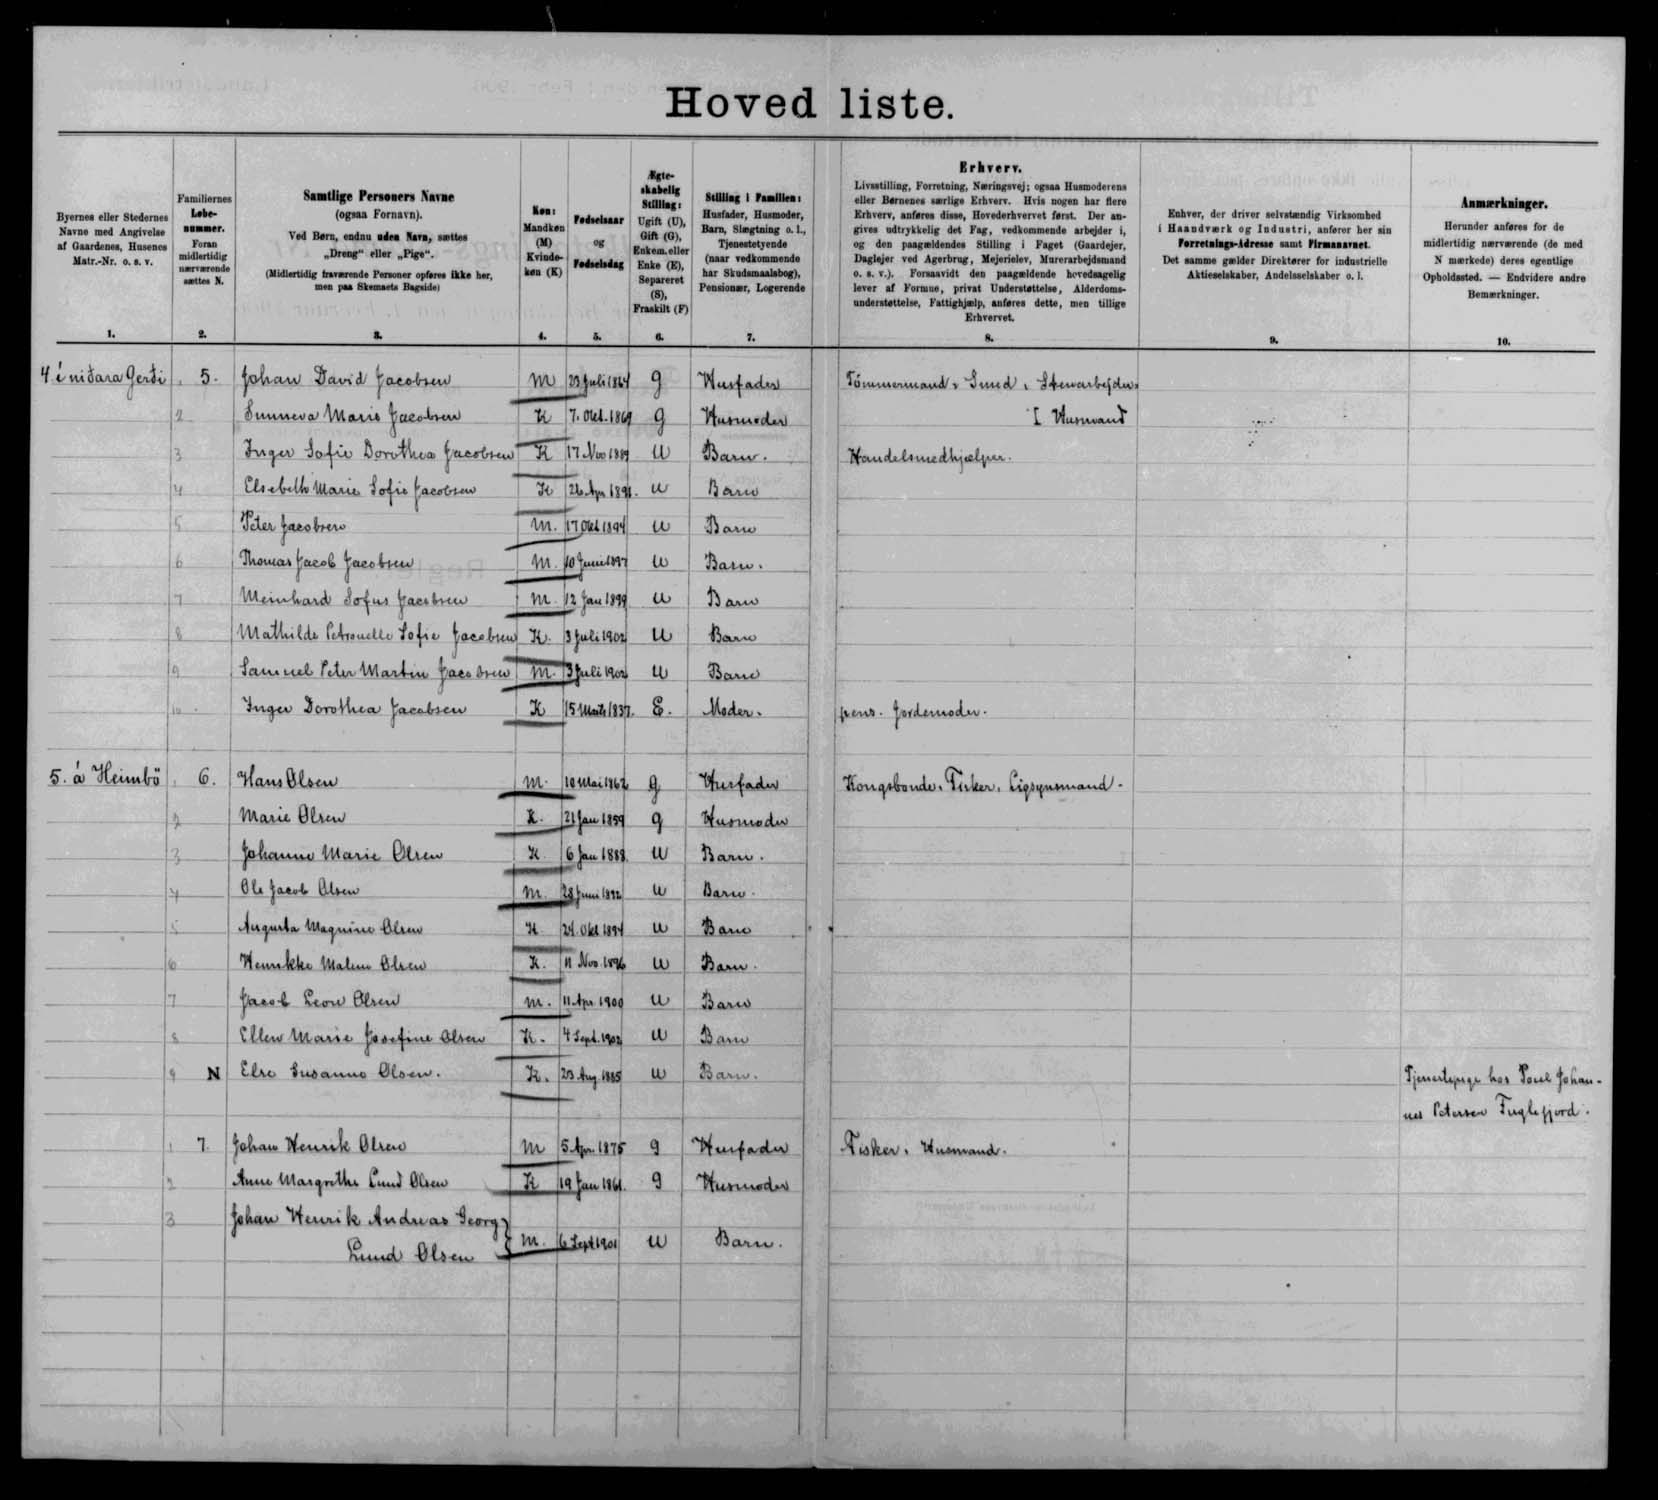 Hoved liste.
Byernes eller Stedernes
Navne med Angivelse
af Gaardenes, Husenes
Matr.-Nr. o. s. v.
1.
Familiernes
Løbe-
nummer.
Foran
midlertidig
nærværende
sættes N.
2.
Samtlige Personers Navne
(ogsaa Fornavn).
Ved Børn, endnu uden Navn, sættes
„Dreng" eller „Pige".
(Midlertidig fraværende Personer opføres ikke her,
men paa Skemaets Bagside)
3.
Køn:
Mandkøn
(M)
Kvinde-
køn (K)
4.
Fødselsaar
og
Fødselsdag
5.
Ægte-
skabelig
Stilling:
Ugift (U),
Gift (G),
Enkem. eller
Enke (E),
Separeret
(S),
Fraskilt (F)
6.
Stilling i Familien:
Husfader, Husmoder,
Barn, Slægtning o. l.,
Tjenestetyende
(naar vedkommende
har Skudsmaalsbog),
Pensionær, Logerende
7.
Erhverv.
Livsstilling, Forretning, Næringsvej; ogsaa Husmoderens
eller Børnenes særlige Erhverv. Hvis nogen har flere
Erhverv, anføres disse, Hovederhvervet først. Der an-
gives udtrykkelig det Fag, vedkommende arbejder i,
og den paagældendes Stilling i Faget (Gaardejer,
Daglejer ved Agerbrug, Mejerielev, Murerarbejdsmand
o. s. v.). Forsaavidt den paagældende hovedsagelig
lever af Formue, privat Understøttelse, Alderdoms-
understøttelse, Fattighjælp, anføres dette, men tillige
Erhvervet.
8.
Enhver, der driver selvstændig Virksomhed
i Haandværk og Industri, anfører her sin
Forretnings-Adresse samt Firmanavnet.
Det samme gælder Direktører for industrielle
Aktieselskaber, Andelsselskaber o. l.
9.
Anmærkninger.
Herunder anføres for de
midlertidig nærværende (de med
N mærkede) deres egentlige
Opholdssted. — Endvidere andre
Bemærkninger.
10.
4. í niðara Gerði 5. Johan David Jacobsen M 23 Juli 1864 g Husfader Tömmermand, Smed,
2 Sunneva Marie Jacobsen K 7. Okt. 1869 g Husmoder I Husmand
3 Inger Sofie Dorothea Jacobsen K 17 Nov 1889 U Barn. Handelsmedhjælper.
4 Elsebeth Marie Sofie Jacobsen K 26 Apr 1891. U Barn
5 Peter Jacobsen M. 17 Okt 1894 U Barn
6 Thomas Jacob Jacobsen M. 10 Juni 1897 U Barn.
7 Meinhard Sofus Jacobsen M. 12 Jan 1899 U Barn
8 Mathilde Petronelle Sofie Jacobsen K. 3 Juli 1902 U Barn
9 Samuel Peter Martin Jacobsen M. 3 Juli 1902 U Barn
10 Inger Dorothea Jacobsen K 15 Marts 1837. E. Moder. pens. Jordemoder.
5. á Heimbö 6. Hans Olsen M. 10 Mai 1862 g Husfader Kongsbonde, Fisker, Ligsynsmand.
2 Marie Olsen K. 21 Jan 1859 g Husmoder
3 Johanne Marie Olsen K. 6 Jan 1888. U Barn.
4 Ole Jacob Olsen M. 28 Juni 1892 U Barn.
5 Augusta Magnine Olsen K 24. Okt 1894 U Barn
6 Henrikke Malene Olsen K. 11 Nov. 1896 U Barn.
7 Jacob Leon Olsen M. 11 Apr. 1900 U Barn
8 Ellen Marie Josefine Olsen K. 4 Sept. 1902 U Barn
9 N Else Susanne Olsen. K. 23 Aug. 1885 U Barn. Tjenestepige hos Poul Johan-
nes Petersen Fuglefjord.
1 7. Johan Henrik Olsen M 5 Apr. 1875 g Husfader Fisker, Husmand.
2 Anne Margrethe Lund Olsen K 19 Jan 1861. g Husmoder
3 Johan Henrik Andreas Georg
Lund Olsen M. 6 Sept 1901 U Barn.